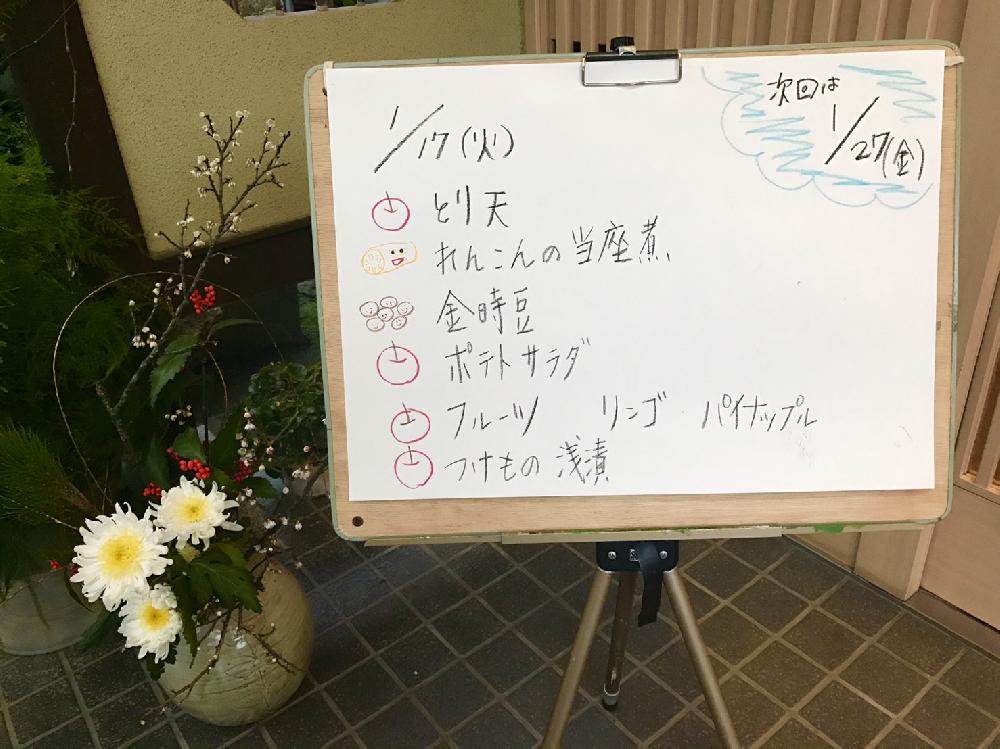 1/17(火)
次回は
1/27(金)
とり天
れんこんの当座煮
金時豆
ポテトサラダ
フルーツ リンゴ パイナップル
つけもの 浅漬